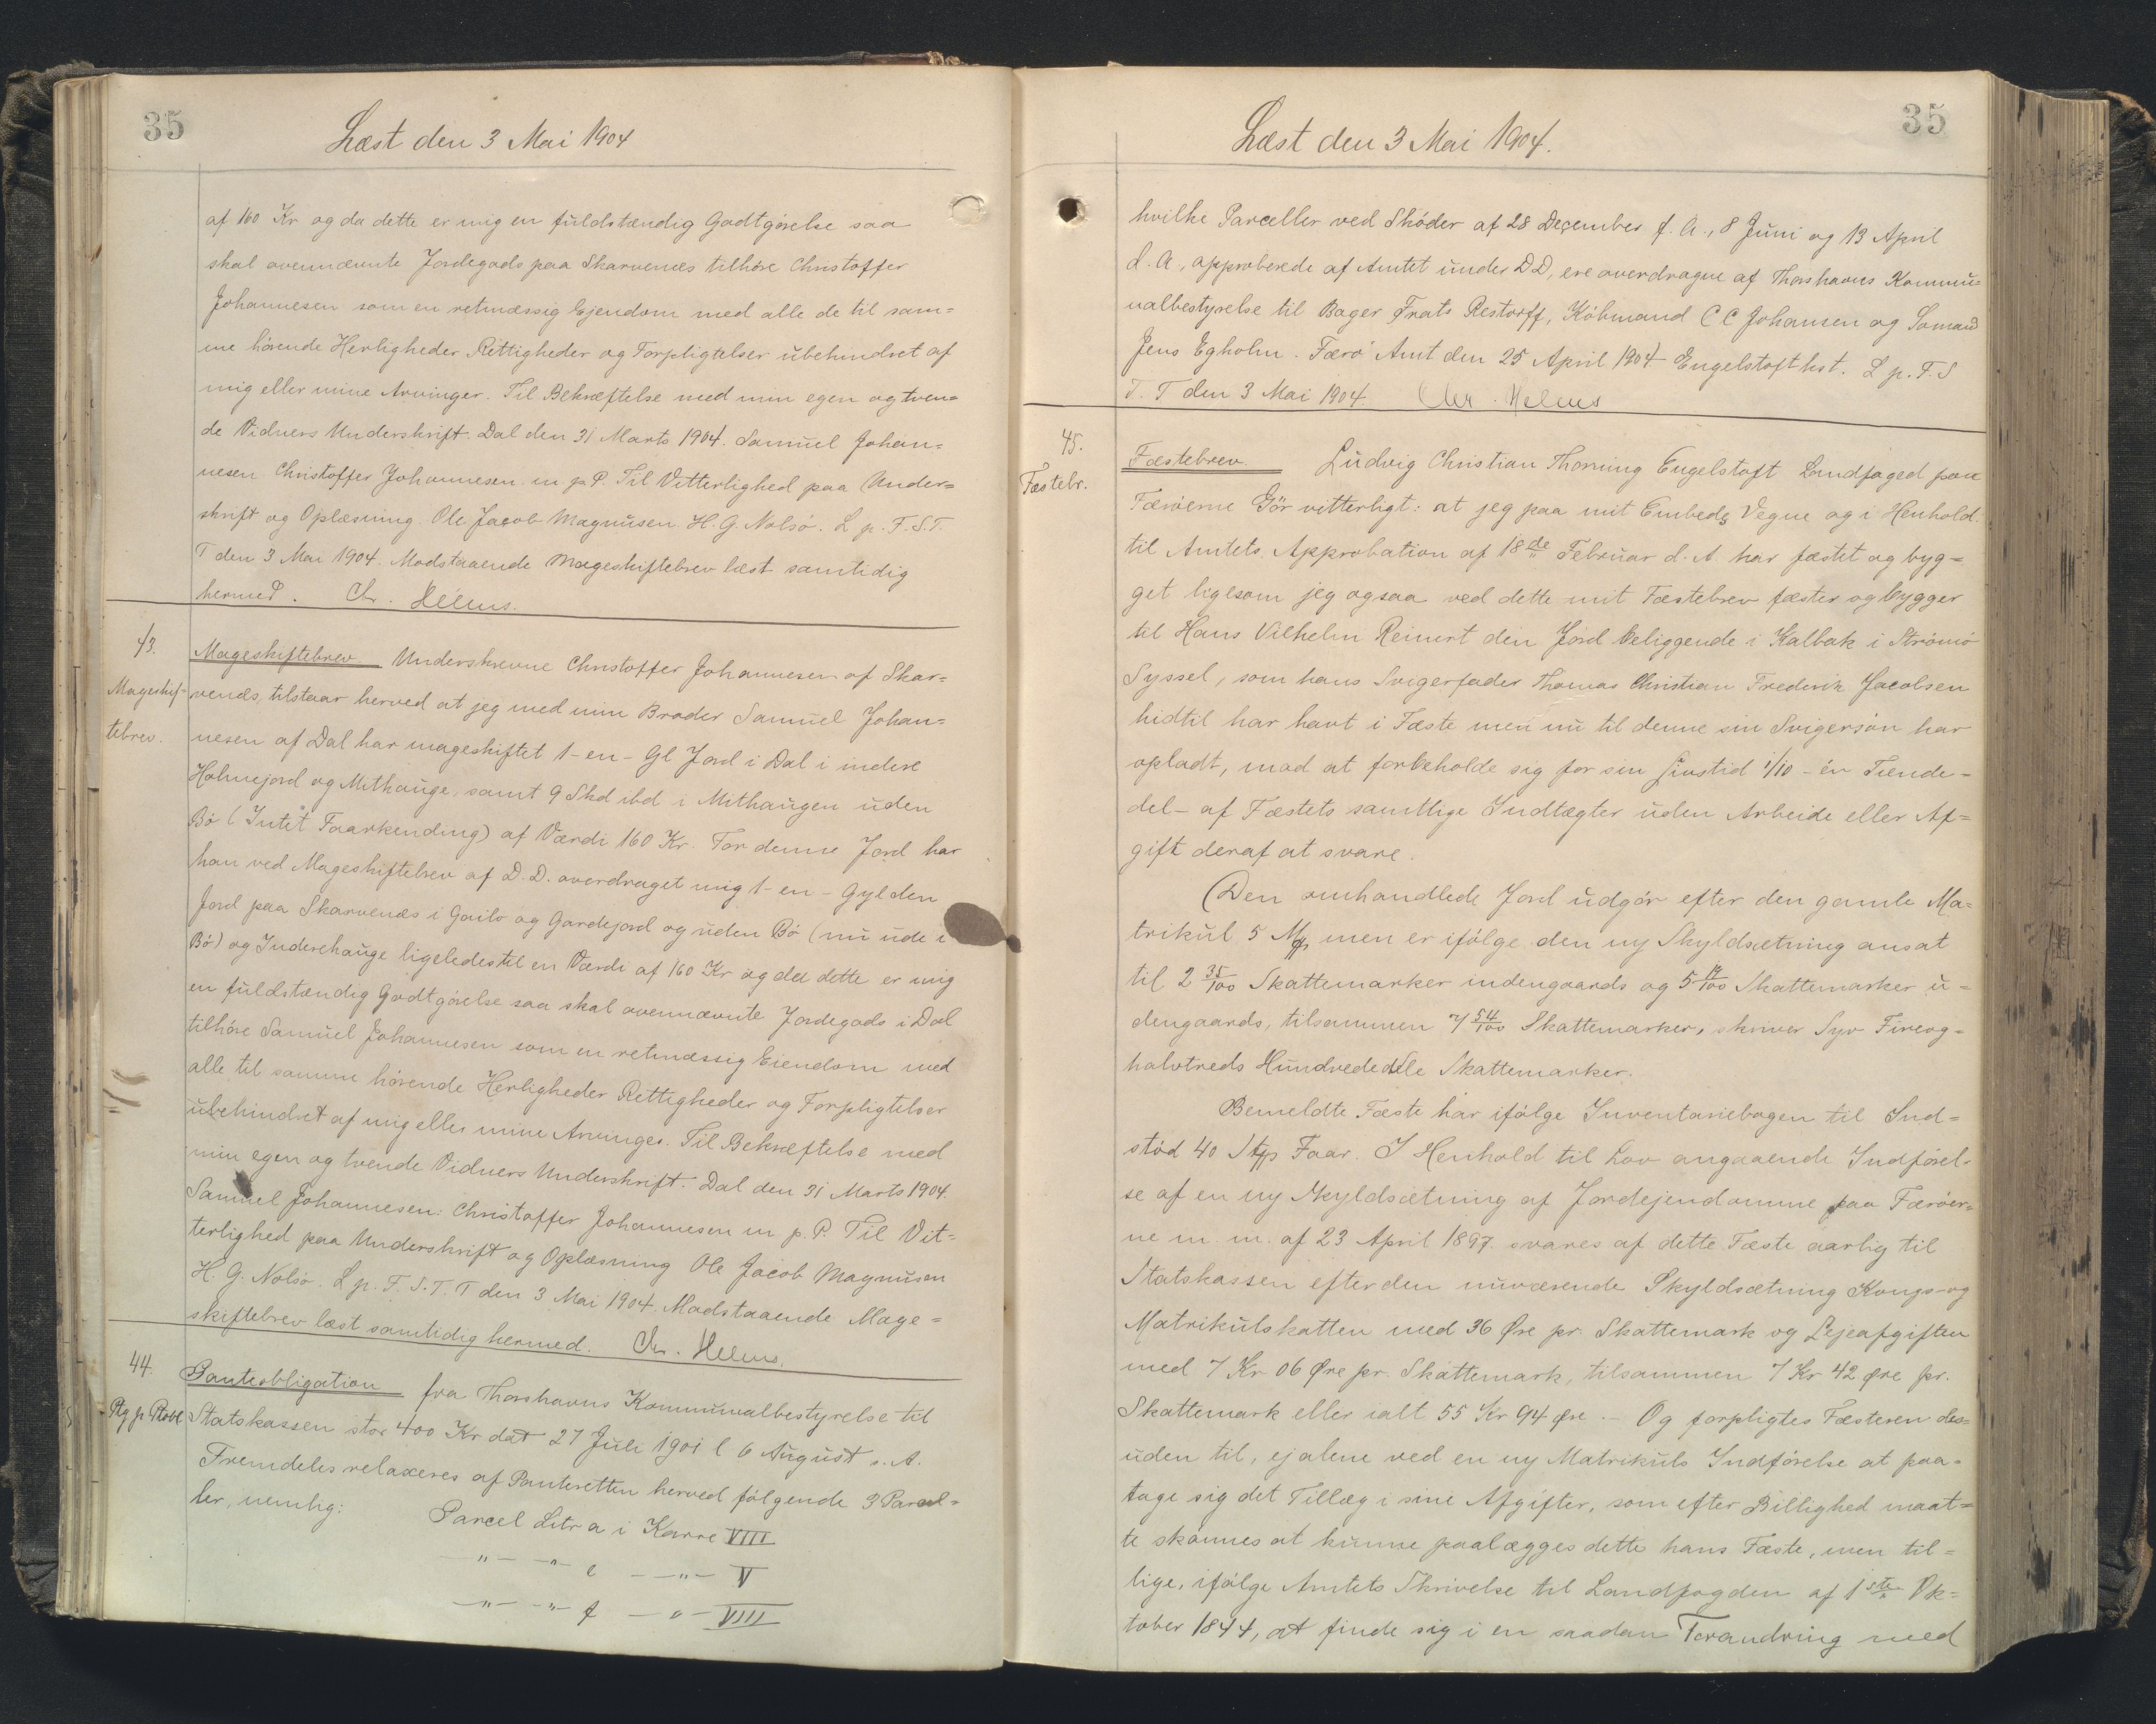 35
Læst den 3 Mai 1904
af 160 Kr og da dette er mig en fuldstændig Godtgörelse saa
skal ovennævnte Jordegods paa Skarvenæs tilhöre Christoffer
Johannesen som en retmæssig Ejendom med alle de til sam=
me hörende Herligheder Rettigheder og Forpligtelser ubehindret af
mig eller mine Arvinger. Til Bekræftelse med min egen og tven=
de Vidners Underskrift. Dal den 31 Marts 1904. Samuel Johan=
nesen Christoffer Johannesen m p. P. Til Vitterlighed paa Under=
skrift og Oplæsning. Ole Jacob Magnusen. H. G. Nolsö. L p. F. S. T.
T den 3 Mai 1904. Modstaaende Mageskiftebrev læst samtidig
hermed. Chr. Helms.
43.
Mageskif=
tebrev.
Mageskiftebrev Underskrevne Christoffer Johannesen af Skar=
venæs, tilstaar herved at jeg med min Broder Samuel Johan=
nesen af Dal har mageskiftet 1- en - Gl Jord i Dal i indere
Holmejord og Mithauge, samt 9 Skd ibd i Mithaugen uden
Bö (Intet Faarkending) af Værdi 160 Kr. For denne Jord har
han ved Mageskiftebrev af D. D. overdraget mig 1- en - Gylden
Jord paa Skarvenæs i Gailo og Gardejord og uden Bö (nu ude i
Bö) og Inderehauge ligeledes til en Værdi af 160 Kr og da dette er mig
en fuldstændig Godtgörelse saa skal ovennævnte Jordegods i Dal
tilhöre Samuel Johannesen som en retmæssig Eiendom med
alle til samme hörende Herligheder Rettigheder og Forpligtelser
ubehindret af mig eller mine Arvinger. Til Bekræftelse med
min egen og tvende Vidners Underskrift. Dal den 31 Marts 1904.
Samuel Johannesen: Christoffer Johannesen m p. P. Til Vit=
terlighed paa Underskrift og Oplæsning Ole Jacob Magnusen
H. G. Nolsö. L p. F. S. T. T den 3 Mai 1904. Modstaaende Mage=
skiftebrev læst samtidig hermed. Chr. Helms.
44.
Ptg p. Ptobl
Panteobligation fra Thorshavns Kommunalbestyrelse til
Statskassen stor 400 Kr dat 27 Juli 1901 l 6 August s. A.
Fremdeles relaxeres af Panteretten herved fölgende 3 Parcel=
ler, nemlig:
Parcel Litr a i Karre VIII
—"— —"— e —"— V
—"— —"— f —"— VIII
35
Læst den 3 Mai 1904.
hvilke Parceller ved Sköder af 28 December f. A., 8 Juni og 13 April
d. A., approberede af Amtet under DD, ere overdragne af Thorshavns Kommu=
nalbestyrelse til Bager Frats Restorff, Köbmand C C Johansen og Sömand
Jens Egholm. Færö Amt den 25 April 1904 Engelstoft kst. L p. F. S
T. T den 3 Mai 1904. Chr. Helms
45.
Fæstebr.
Fæstebrev. Ludvig Christian Thorning Engelstoft Landfoged paa
Færöerne Gör vitterligt: at jeg paa mit Embeds Vegne og i Henhold
til Amtets Approbation af 18de Februar d. A. har fæstet og byg=
get ligesom jeg ogsaa ved dette mit Fæstebrev fæster og bygger
til Hans Vilhelm Reinert den Jord beliggende i Kalbak i Strömö
Syssel, som hans Svigerfader Thomas Christian Frederik Jacobsen
hidtil har havt i Fæste men nu til denne sin Svigersön har
opladt, mod at forbeholde sig for sin Livstid 1/10 - én Tiende-
del - af Fæstets samtlige Indtægter uden Arbeide eller Af=
gift deraf at svare.
(Den omhandlede Jord udgör efter den gamle Ma=
trikul 5 Mk men er ifölge den ny Skyldsætning ansat
til 2 35/100 Skattemarker indengaards og 5 19/100 Skattemarker u=
dengaards, tilsammen 7 54/100 Skattemarker, skriver Syv Fireog-
halvtreds Hundrededele Skattemarker.
Bemeldte Fæste har ifölge Inventariebogen til Ind=
stöd 40 Stk Faar. I Henhold til Lov angaaende Indförel-
se af en ny Skyldsætning af Jordejendomme paa Færöer=
ne m. m. af 23 April 1897. svares af dette Fæste aarlig til
Statskassen efter den nuværende Skyldsætning Konge- og
Matrikulskatten med 36 Øre pr. Skattemark og Lejeafgiften
med 7 Kr 06 Øre pr. Skattemark, tilsammen 7 Kr 42 Øre pr.
Skattemark eller ialt 55 Kr 94 Øre. — Og forpligtes Fæsteren des=
uden til, ej alene ved en ny Matrikuls Indförelse at paa-
tage sig det Tillæg i sine Afgifter, som efter Billighed maat=
te skönnes at kunne paalægges dette hans Fæste, men til=
lige, ifölge Amtets Skrivelse til Landfogden af 1ste Ok=
tober 1844, at finde sig i en saadan Forandring med